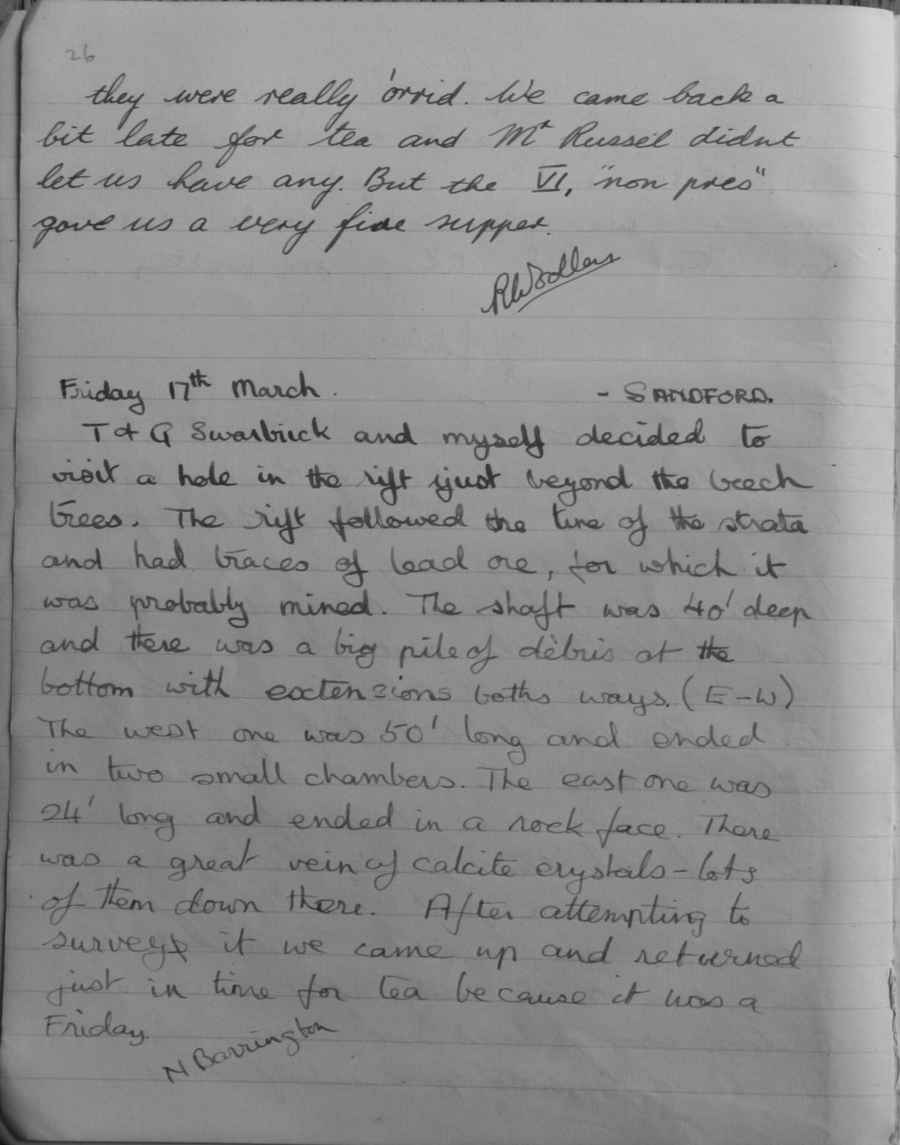 26
they were really 'orrid. We came back a
bit late for tea and Mr Russel didnt
let us have any. But the VI, "non pres"
gave us a very fine supper.
Friday 17th March. - SANDFORD.
T & G Swarbrick and myself decided to
visit a hole in the rift just beyond the beech
trees. The rift followed the line of the strata
and had traces of lead ore, for which it
was probably mined. The shaft was 40' deep
and there was a big pile of dèbris at the
bottom with extensions boths ways. (E-W)
The west one was 50' long and ended
in two small chambers. The east one was
24' long and ended in a rock face. There
was a great vein of calcite crystals - lots
of them down there. After attempting to
survey it we came up and returned
just in time for tea because it was a
Friday.
N Barrington